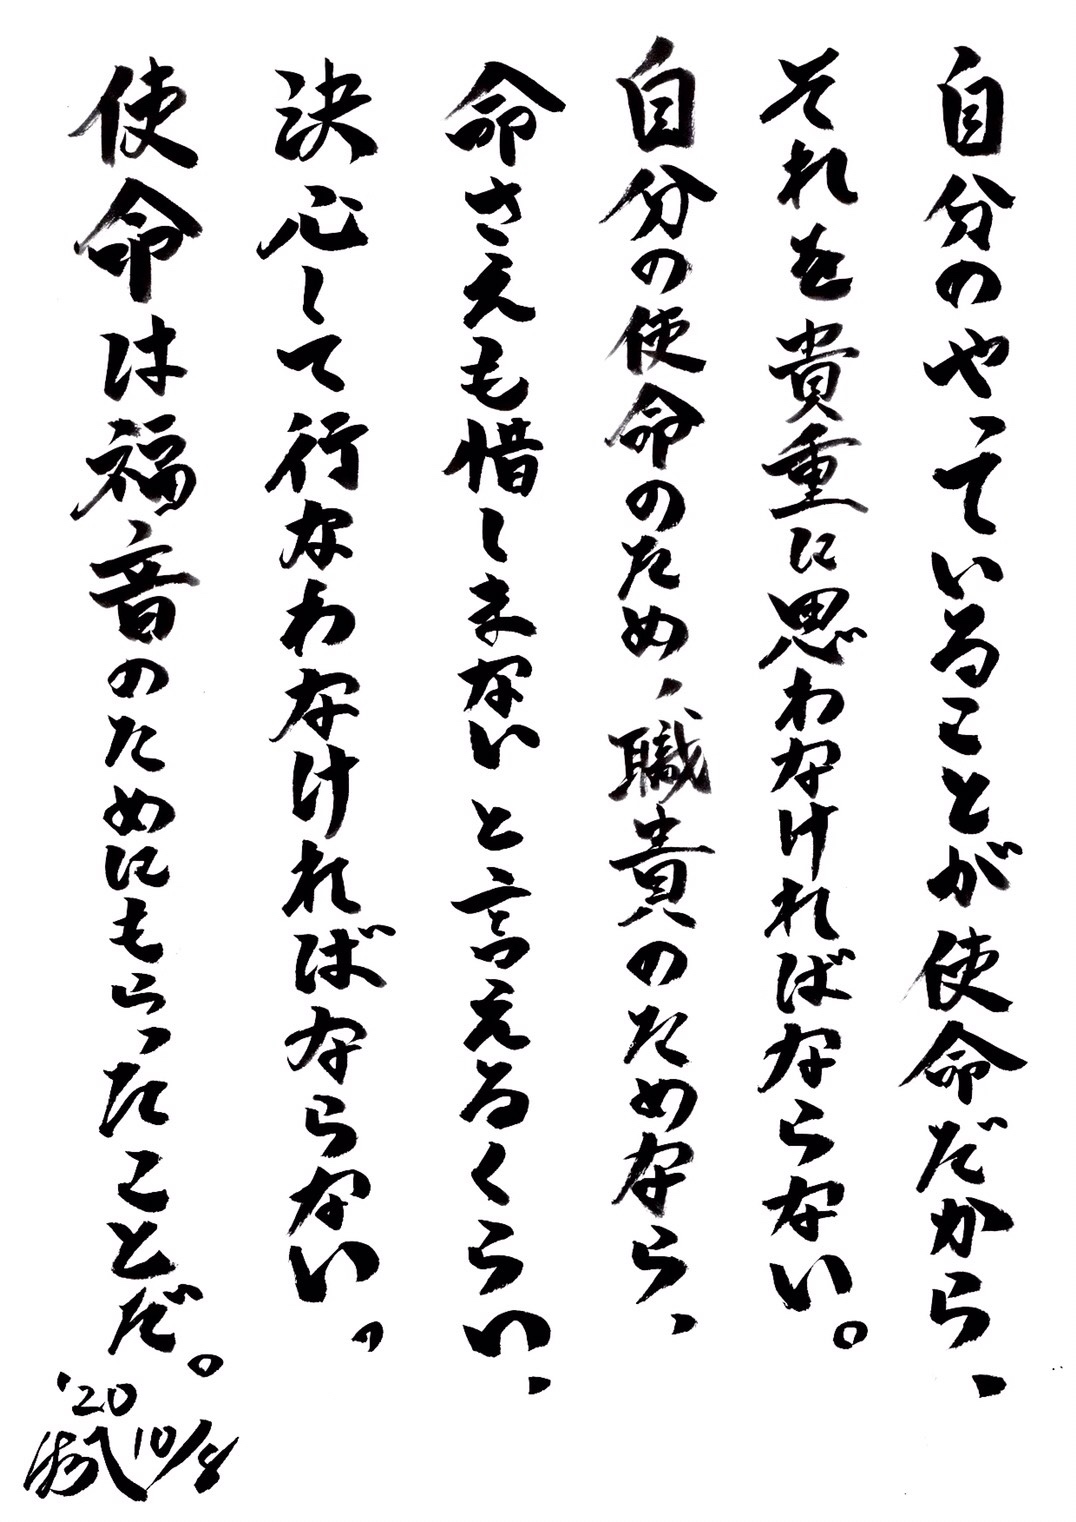 自分のやっていることが使命だから、
それを貴重に思わなければならない。
自分の使命のため、職責のためなら、
命さえも惜しまないと言えるくらい、
決心して行なわなければならない。
使命は福音のためにもらったことだ。
'20
10/8